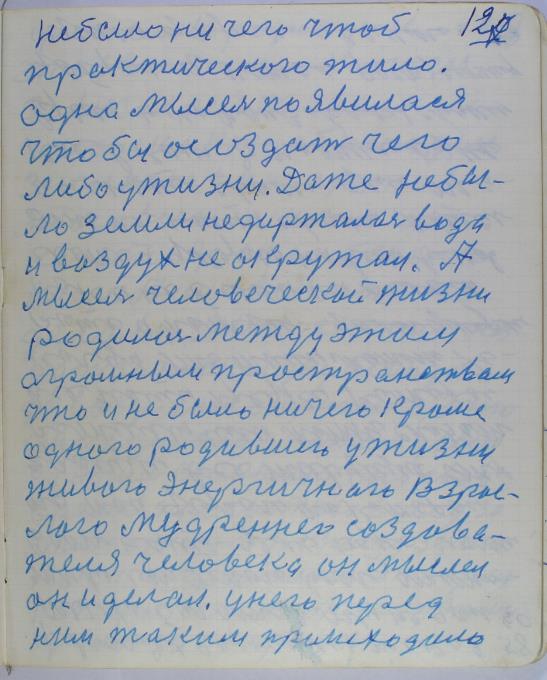 12
небыло ни чего чтоб
практического жило.
одна мысля появилася
что бы осоздат чего
либо ужизни. Даже небы-
ло земли недиржалоя вода
и воздух не окружал. А
мысля человеческой жизни
родилоя между этим
огромным пространствам
что и не было ничего кроме
одного родившего ужизни
живого Энергичного Взрос-
лого мудреннего создова-
теля человека он мыслел
он и делал. унего перед
ним таким происходило